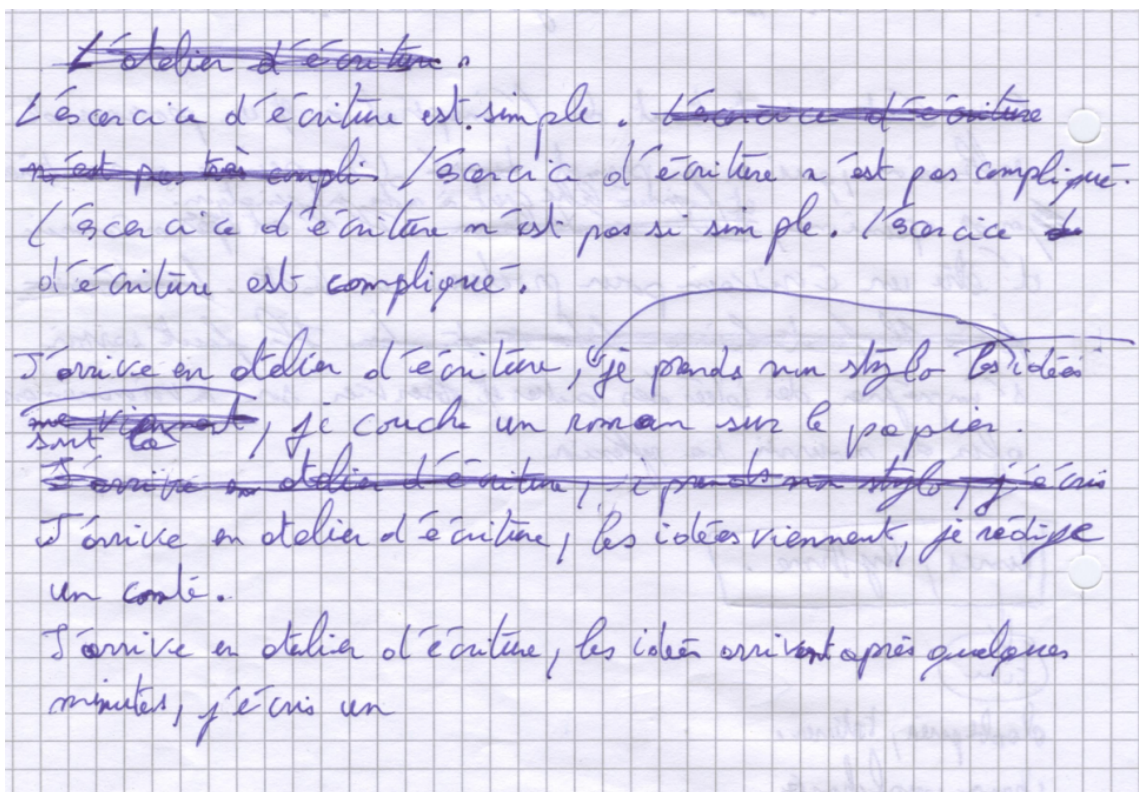 L'atelier d'écriture.
L'exercice d'écriture est simple. L'exercice d'écriture
n'est pas très compli L'exercice d'écriture n'est pas compliqué.
L'exercice d'écriture n'est pas si simple. L'exercice de
d'écriture est compliqué.
J'arrive en atelier d'écriture, je prends mon stylo les idées
me viennent, je couche un roman sur le papier.
sont là
J'arrive en atelier d'écriture, je prends mon stylo, j'écris
J'arrive en atelier d'écriture, les idées viennent, je rédige
un conte.
J'arrive en atelier d'écriture, les idées arrivent après quelques
minutes, j'écris un